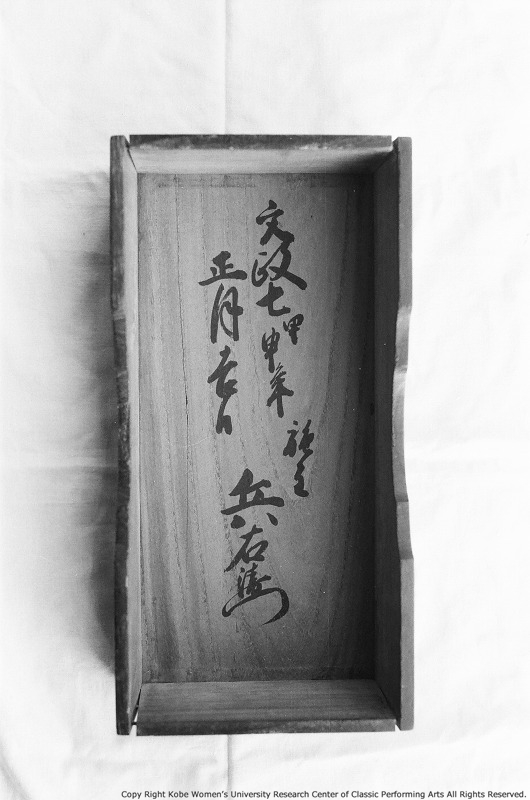 文政七甲申年
正月吉日
施主
兵右衛門
Copy Right Kobe Women's University Research Center of Classic Performing Arts All Rights Reserved.